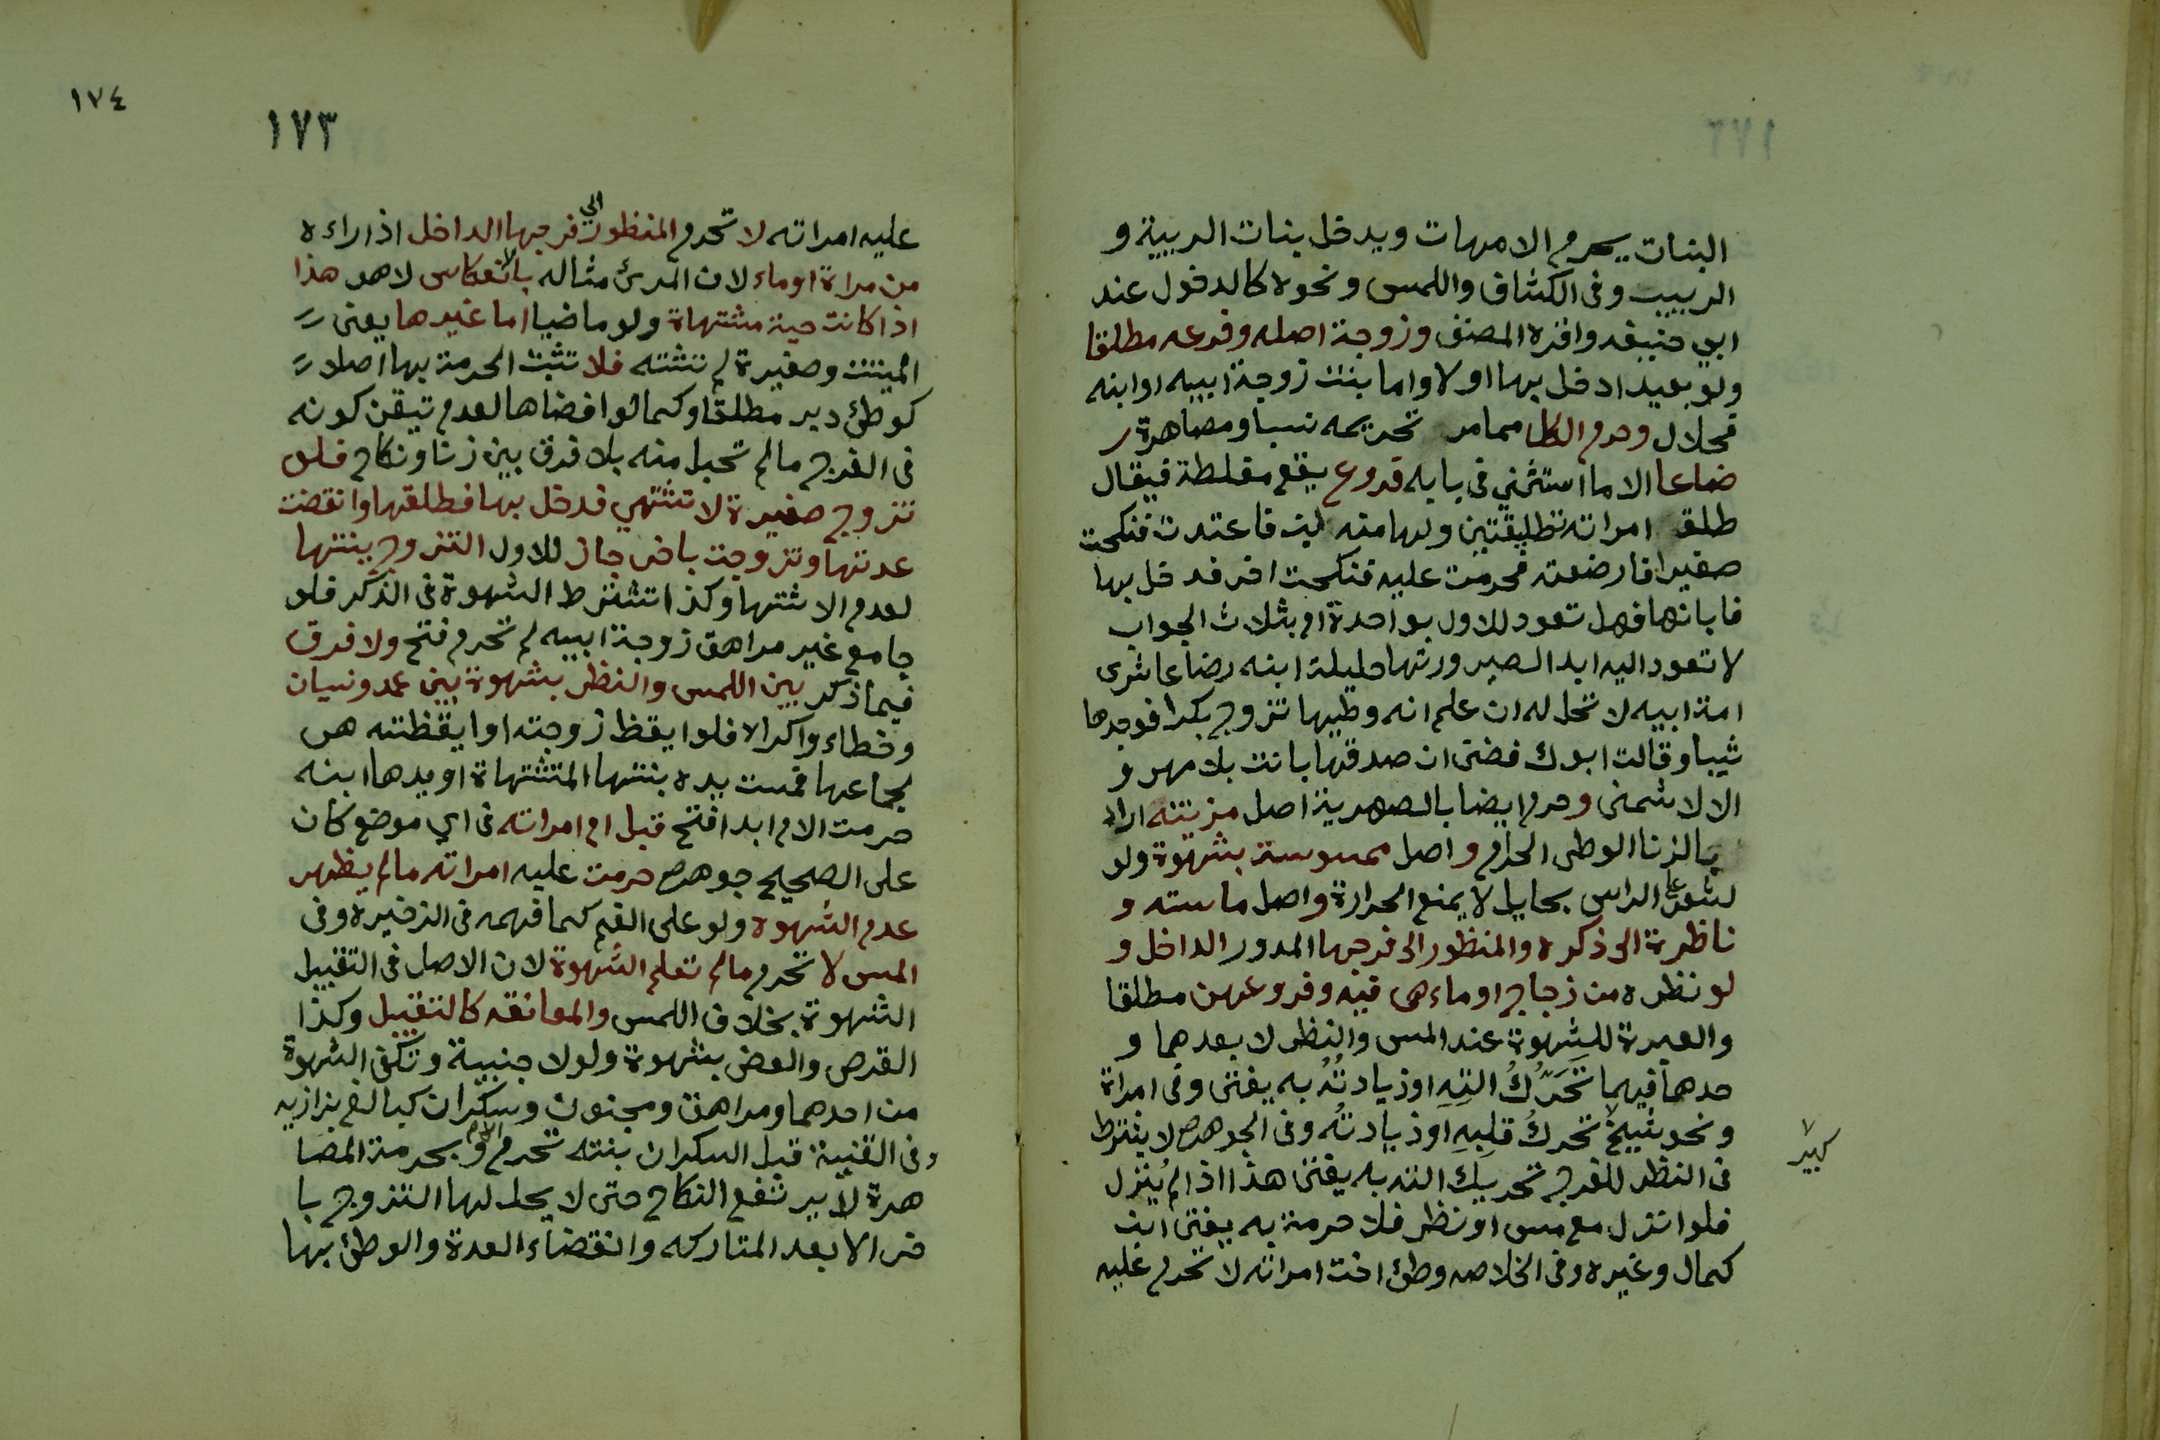 البنات يحرم الامهات ويدخل بنات الربيبة و
الربيب وفى الكشاف واللمس ونحوه كالدخول عند
ابي حنيفه واقره المصنف وزوجة اصله وفرعه مطلقا
ولو بعيد ادخل بها اولا واما بنت زوجة ابيه او ابنه
فحلال وحرم الكل ممامر تحريمه نسبا ومصاهرة
رضاعا الا ما استثني في بابه فروع يقع مغلطة فيقال
طلق امراته تطليقتين ولها منه لبن فاعتدت فنكحت
صغيرا فارضعته فحرمت عليه فنكحت اخر فدخل بها
فابانها فهل تعود للاول بواحدة ام بثلاث الجواب
لا تعود اليه ابد الصيرورتها حليلة ابنه رضاعا شرى
امة ابيه لا تحل له ان علم انه وطيها تزوج بكرا فوجدها
ثيبا وقالت ابوك فضنى ان صدقها بانت بلا مهر و
الا لا شمنى وحرم ايضا بالصهرية اصل مزنيته اراد
بالزنا الوطى الحرام واصل ممسوسته بشهوة ولو
لشعر على الراس بحايل لا يمنع الحرارة واصل ماسته و
ناظرة الى ذكره والمنظور الى فرجها المدور الداخل و
لو نظره من زجاج او ماء هى فيه وفروعهن مطلقا
والعبرة للشهوة عند المس والنظر لا بعدهما و
حدها فيهما تَحَرُّكُ التِهِ او زيادتُهُ به يفتى وفى امراة
ونحو شيخ كبير تحركُ قلبِهِ او زيادتُه وفى الجوهره لا يشترط
فى النظر للفرج تحريك الته به يفتى هذا اذا لم يُنزل
فلو انزل مع مس او نظر فلا حرمة به يفتى ابن
كمال وغيره وفى الخلاصه وطئ اخت امراته لا تحرم عليه
١٧٤
١٧٣
عليه امراته لا تحرم المنظور الي فرجها الداخل اذا راءه
من مراة او ماء لان المرئ مثاله بالانعكاس لا هو هذا
اذا كانت حية مشتهاة ولو ماضيا اما غيرها يعنى
الميتت وصغيرة لم تشته فلا تثبت الحرمة بها اصلا
كوطئ دبر مطلقا وكما لو افضاها لعدم تيقن كونه
فى الفرج مالم تحبل منه بلا فرق بين زنا ونكاح فلو
تزوج صغيرة لا تشتهي فدخل بها فطلقها وانقضت
عدتها وتزوجت باخر جاز للاول التزوج ببنتها
لعدم الاشتها وكذا تشترط الشهوة فى الذكر فلو
جامع غير مراهق زوجة ابيه لم تحرم فتح ولا فرق
فيما ذكر بين اللمس والنظر بشهوة بين عمد ونسيان
وخطاء واكراه فلو ايقظ زوجته او ايقظته هى
لجماعها فمست يده بنتها المشتهاة او يدها ابنه
حرمت الام ابدا فتح قبل ام امراته فى اي موضع كان
على الصحيح جوهره حرمت عليه امراته مالم يظهر
عدم الشهوه ولو على الفم كما فهمه فى الذخيره وفى
المس لا تحرم مالم تعلم الشهوة لان الاصل فى التقبيل
الشهوة بخلاف اللمس والمعانقه كالتقبيل وكذا
القرص والعض بشهوة ولو لاجنبية وتكفى الشهوة
من احدهما ومراهق ومجنون وسكران كبالغ بزازيه
وفى القنية قبل السكران بنته تحرم الام وبحرمة المصا
هرة لا يرتفع النكاح حتى لا يحل لها التزوج با
خر الا بعد المتاركه وانقضاء العدة والوطئ بها